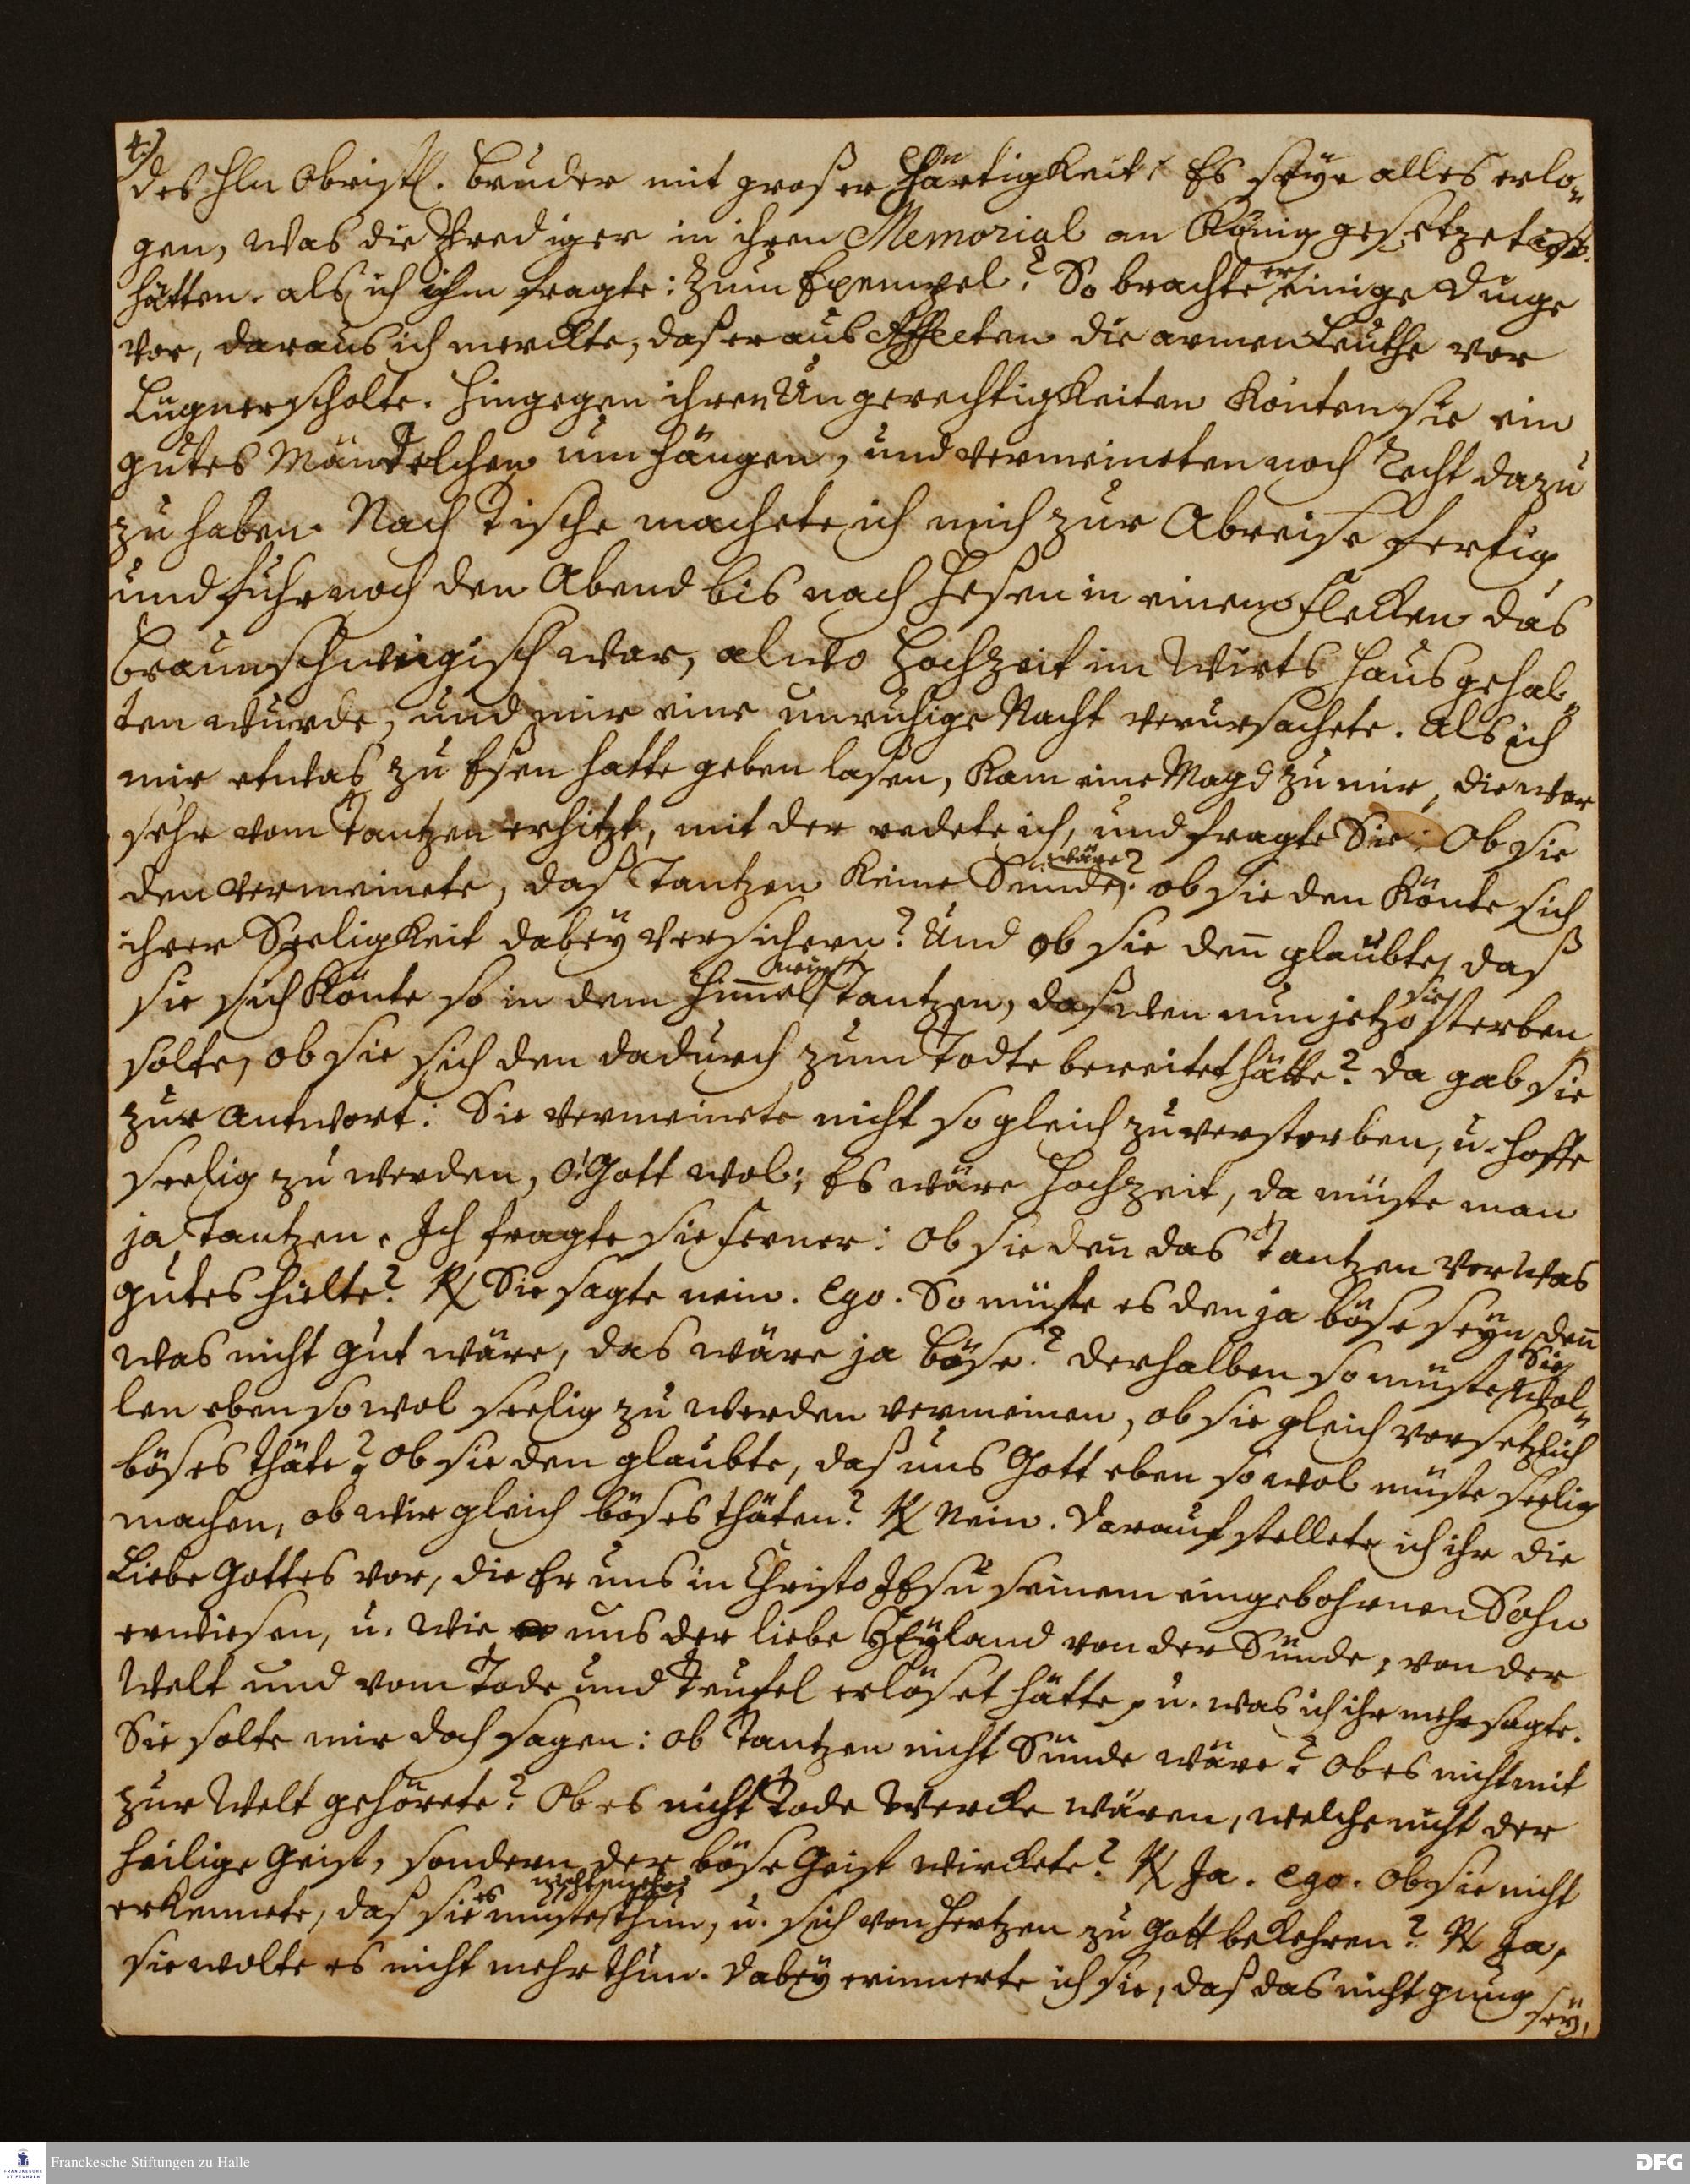 4.)
des Hln Obristl. Bruder mit großer Härtigkeit: Es seye alles erlo-
gen, was die Prediger in ihren Memorial an König gesetzet
hätten. als ich ihm fragte: Zum Exempel? So brachte er einige Dinge
vor, daraus ich merckte, daß er aus Affecten die armen Leuthe vor
Lügner scholte. Hingegen ihren Ungerechtigkeiten könten sie ein
gutes Mäntelchen umhängen, und vermeineten noch Recht dazu
zu haben. Nach Tische machete ich mich zur Abreise fertig
und fuhr noch den Abend bis nach Heßen in einem Flecken das
Braunschweigisch war, alwo Hochzeit im Wirts Haus gehal-
ten wurde, und mir eine unruhige Nacht verursachete. Als ich
mir etwas zu Eßen hatte geben laßen, kam eine Magd zu mir, die war
sehr vom Tantzen erhitzt, mit der redete ich, und fragte Sie: Ob sie
den vermeinete, daß Tantzen keine Sünde wäre? ob sie den könte sich
ihrer Seeligkeit dabey versichern? Und ob sie deñ glaubte, daß
sie sich könte so in dem Him̃el nein Tantzen, daß wen nun jetzo sie sterben
solte, ob sie sich den dadurch zum Todte bereitet hätte? Da gab sie
zur Antwort: Sie vermeinete nicht so gleich zuversterben, u. hoffe
seelig zu werden, O! Gott wol; Es wäre Hochzeit, da müste man
ja Tantzen. Ich fragte sie ferner: Ob sie deñ das Tantzen vor was
gutes hielte? R/ Sie sagte nein. Ego. So müste es den ja böse seyn, deñ
was nicht gut wäre, das wäre ja böse? Derhalben so müste Sie wol-
len eben so wol seelig zu werden vermeinen, ob sie gleich vorsetzlich
böses thäte? Ob sie den glaubte, daß uns Gott eben so wol müste seelig
machen, ob wir gleich böses thäten? R/ Nein. Darauf stellete ich ihr die
Liebe Gottes vor, die Er uns in Christo JEsu seinem eingebohrnen Sohn
erwiesen, u. wie uns der liebe HEyland von der Sünde, von der
Welt und vom Tode und Teufel erlöset hätte, u. was ich ihr mehr sagte.
Sie solte mir doch sagen: ob Tantzen nicht Sünde wäre? Ob es nicht mit
zur Welt gehörete? Ob es nicht Tode Wercke wären, welche nicht der
heilige Geist, sondern der böse Geist wirckete? R/ Ja. Ego. Ob sie nicht
erkennete, daß sie es müste nicht mehr thun, u. sich von Hertzen zu Gott bekehren? R/ Ja,
sie wolte es nicht mehr thun. Dabey erinnerte ich sie, daß das nicht gnug
sey,
Franckesche Stiftungen zu Halle
DFG